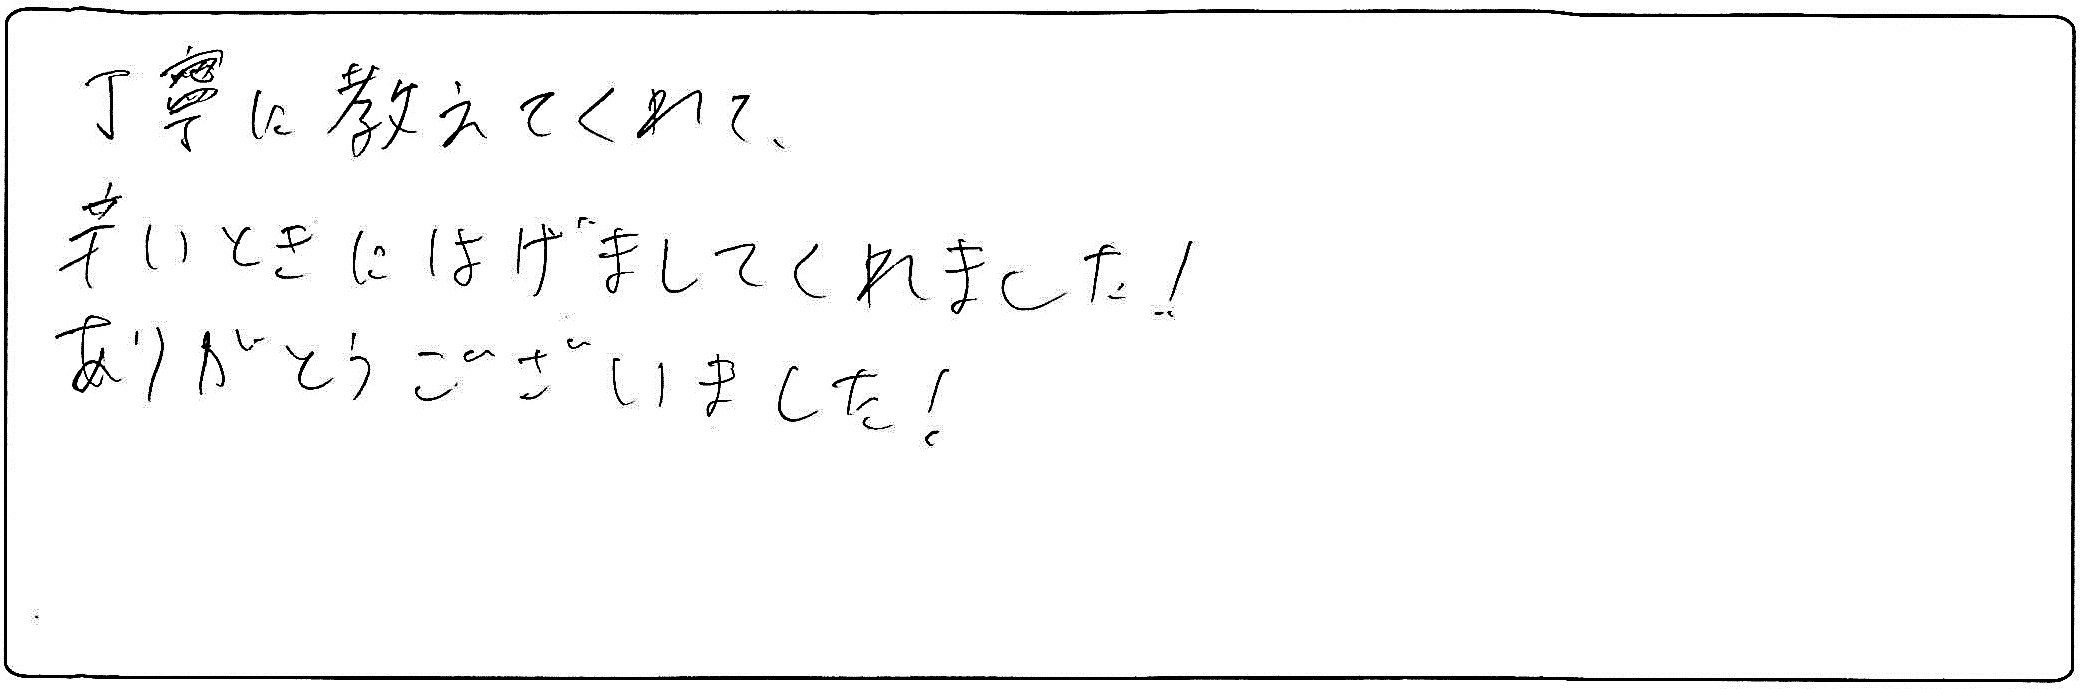 丁寧に教えてくれて、
辛いときにはげましてくれました!
ありがとうございました!